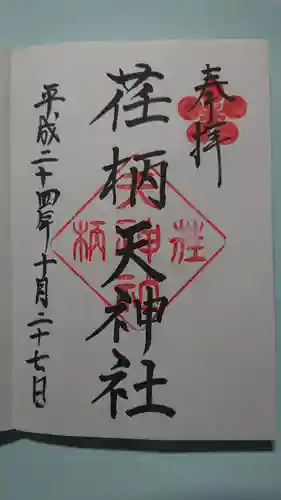 奉拝
荏柄天神社
平成二十四年十月二十七日
荏
天神社
柄